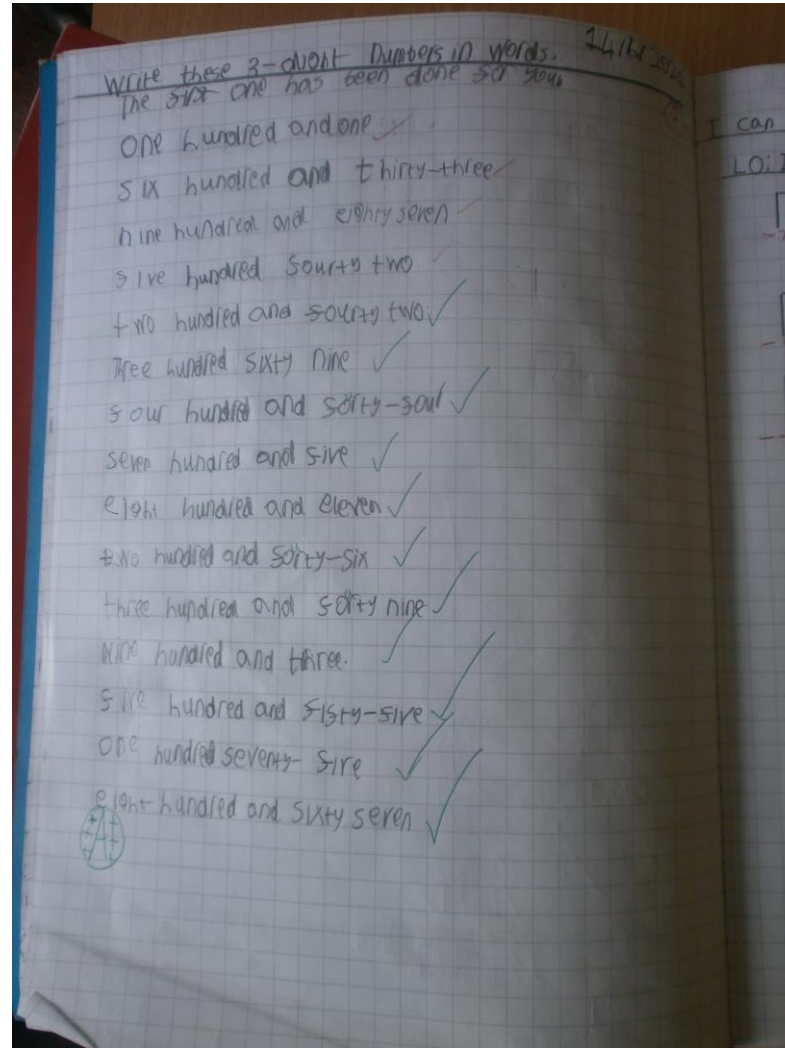 Write these 3-dight numbers in words.
The first one has been done for you.
one hundred and one
six hundred and thirty-three
nine hundred and eighry seven
five hundred fourty two
two hundred and fourty two
Three hundred sixty nine
four hundred and forty-four
seven hundred and five
eight hundred and eleven
two hundred and forty-six
three hundred and forty nine
nine hondred and three.
five hundred and fifty-five
one hundred seventy-five
eight hundred and sixty seven
I can
LO: I